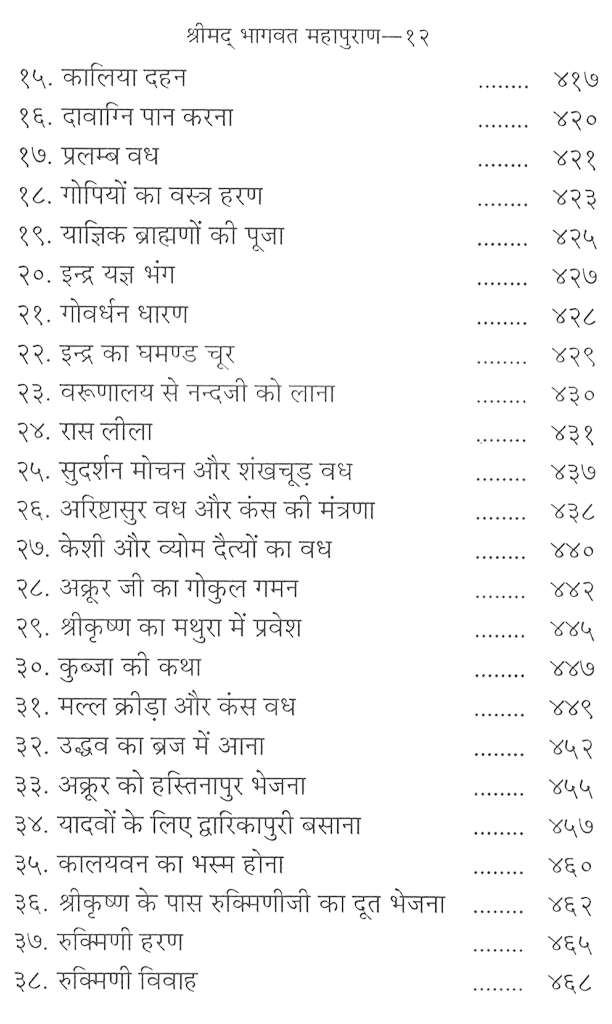 श्रीमद् भागवत महापुराण—१२
१५. कालिया दहन ........ ४१७
१६. दावाग्नि पान करना ........ ४२०
१७. प्रलम्ब वध ........ ४२१
१८. गोपियों का वस्त्र हरण ........ ४२३
१९. याज्ञिक ब्राह्मणों की पूजा ........ ४२५
२०. इन्द्र यज्ञ भंग ........ ४२७
२१. गोवर्धन धारण ........ ४२८
२२. इन्द्र का घमण्ड चूर ........ ४२९
२३. वरूणालय से नन्दजी को लाना ........ ४३०
२४. रास लीला ........ ४३१
२५. सुदर्शन मोचन और शंखचूड़ वध ........ ४३७
२६. अरिष्टासुर वध और कंस की मंत्रणा ........ ४३८
२७. केशी और व्योम दैत्यों का वध ........ ४४०
२८. अक्रूर जी का गोकुल गमन ........ ४४२
२९. श्रीकृष्ण का मथुरा में प्रवेश ........ ४४५
३०. कुब्जा की कथा ........ ४४७
३१. मल्ल क्रीड़ा और कंस वध ........ ४४९
३२. उद्धव का ब्रज में आना ........ ४५२
३३. अक्रूर को हस्तिनापुर भेजना ........ ४५५
३४. यादवों के लिए द्वारिकापुरी बसाना ........ ४५७
३५. कालयवन का भस्म होना ........ ४६०
३६. श्रीकृष्ण के पास रुक्मिणीजी का दूत भेजना ........ ४६२
३७. रुक्मिणी हरण ........ ४६५
३८. रुक्मिणी विवाह ........ ४६८